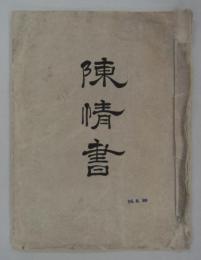 陳情書